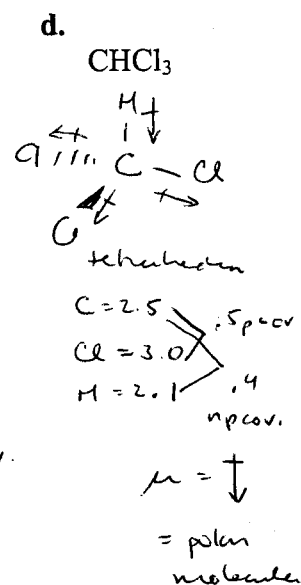 d.
CHCl₃
H
Cl C Cl
Cl
tetrahedron
C = 2.5
.5 pcov
Cl = 3.0
H = 2.1
.4
npcov.
μ =
= polar
molecule